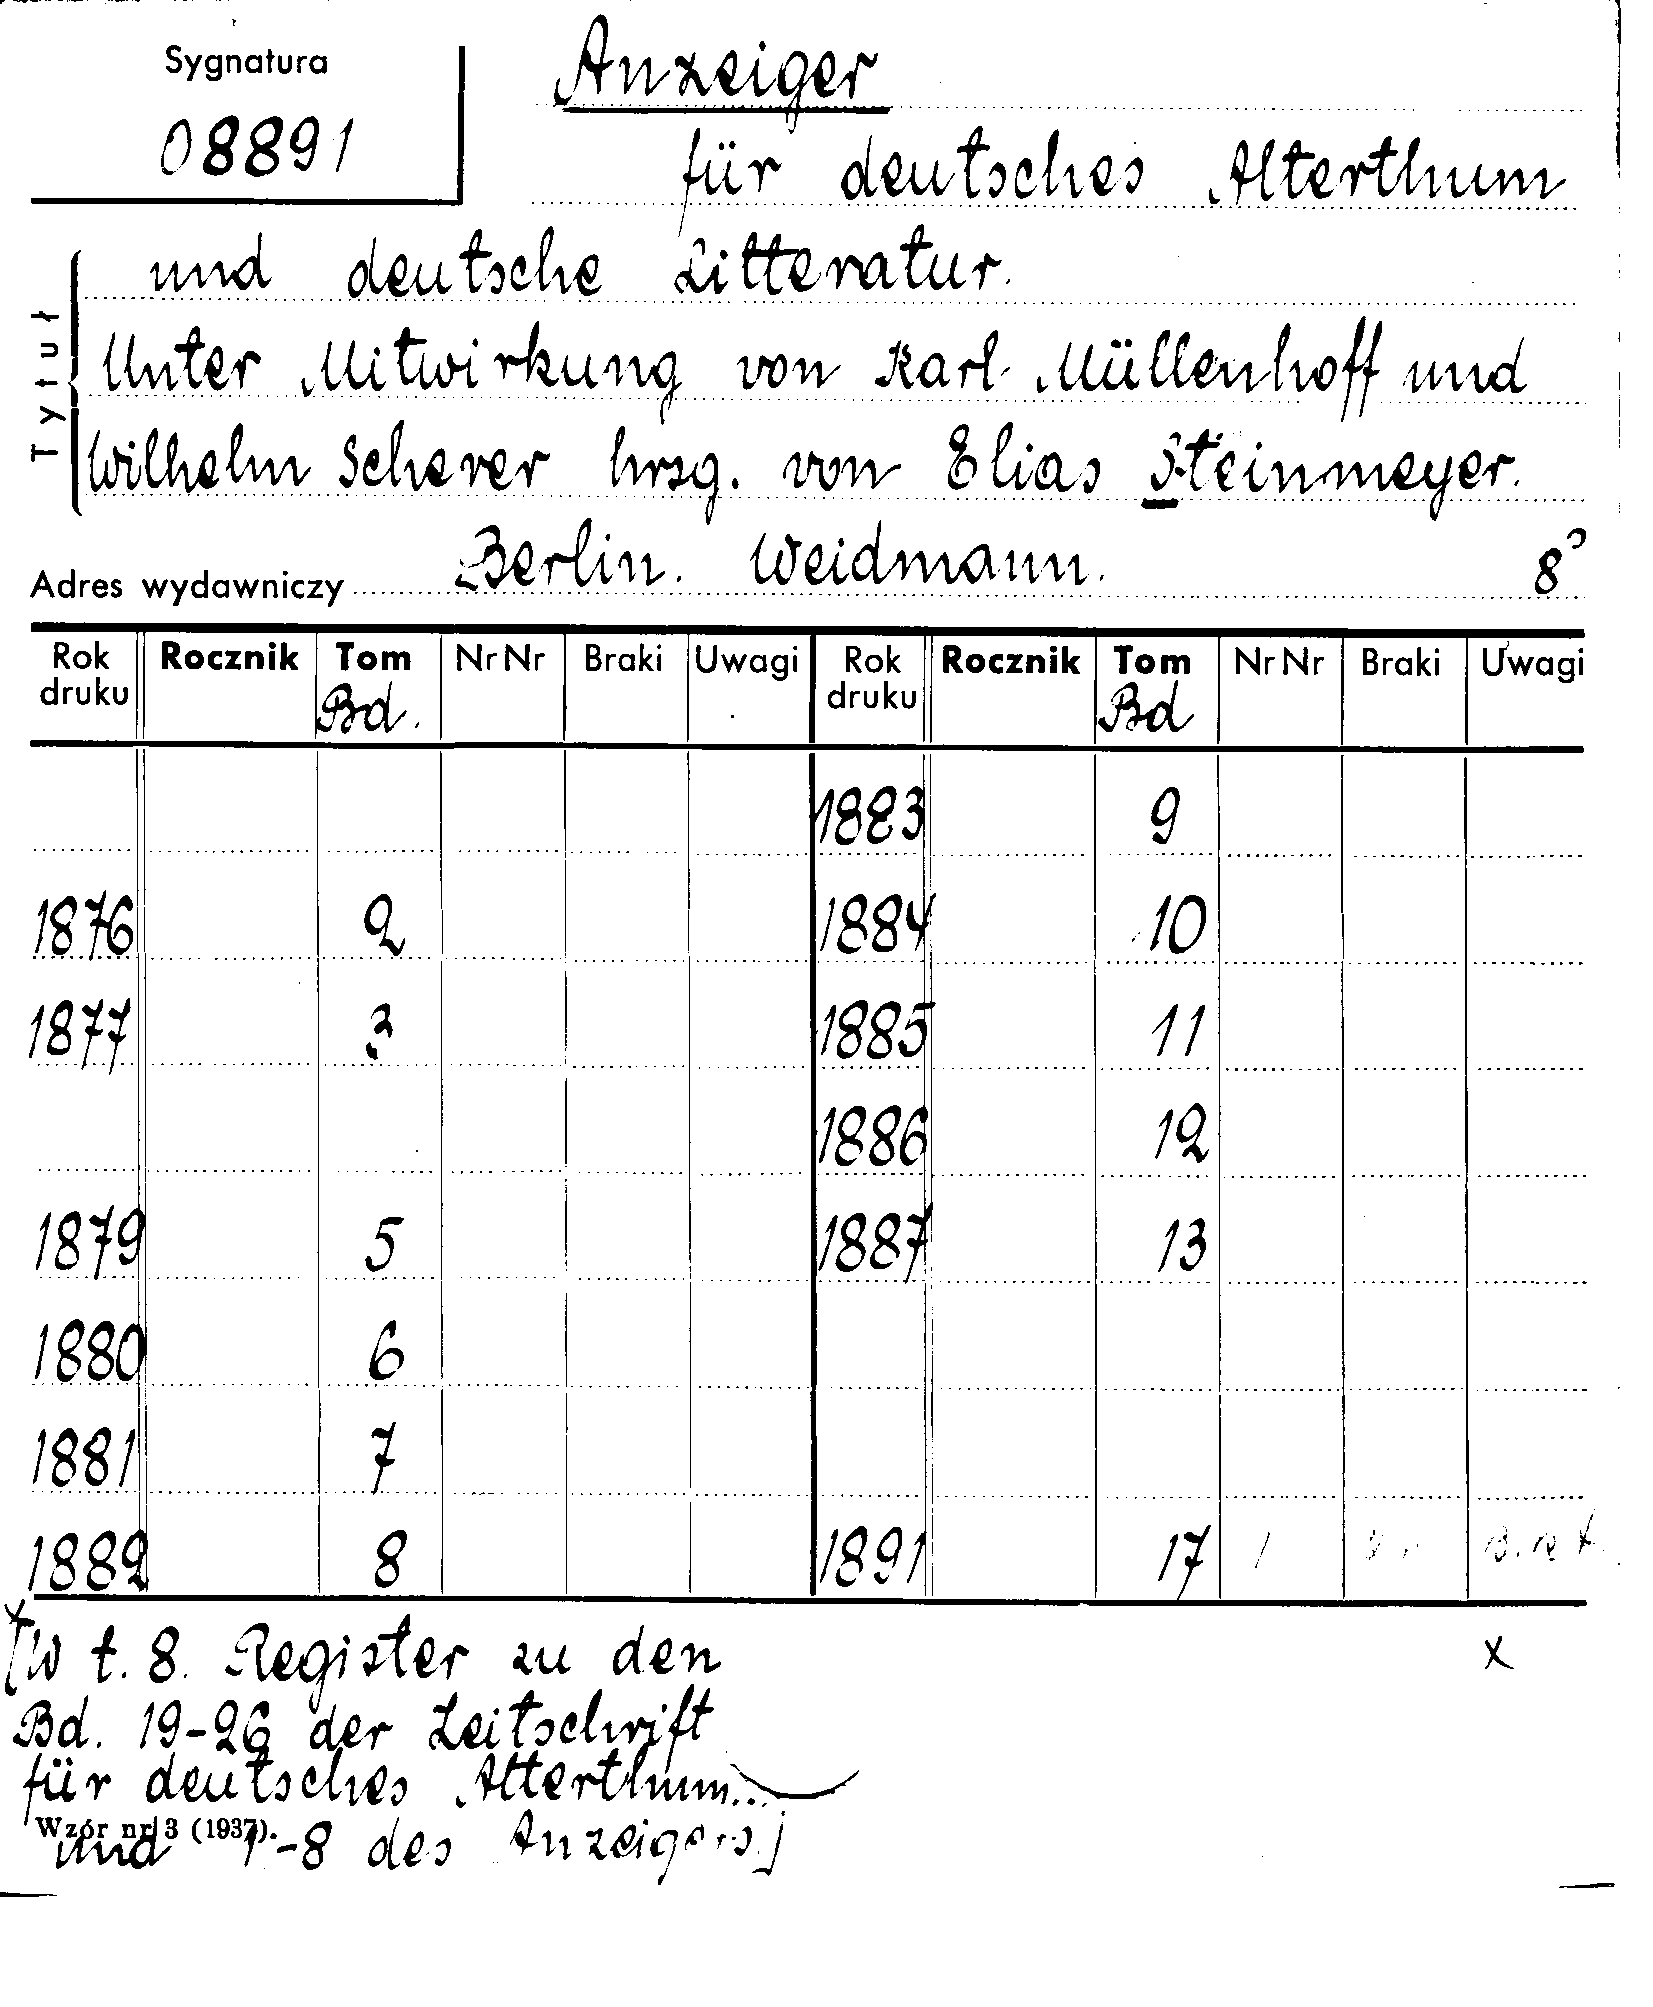 Sygnatura
08891
Anzeiger
für deutsches Alterthum
und deutsche Litteratur.
Unter Mitwirkung von Karl Müllenhoff und
Wilhelm Scherer hrsg. von Elias Steinmeyer.
Tytuł
Adres wydawniczy Berlin. Weidmann. 8°
Rok druku Rocznik Tom Nr Nr Braki Uwagi Rok druku Rocznik Tom Nr Nr Braki Uwagi
Bd. Bd
1883 9
1876 2 1884 10
1877 3 1885 11
1886 12
1879 5 1887 13
1880 6
1881 7
1882 8 1891 17 1
x
[W t. 8. Register zu den
x
Bd. 19-26 der Zeitschrift
für deutsches Alterthum...
Wzór nr 3 (1937).
und 1-8 des Anzeigers]